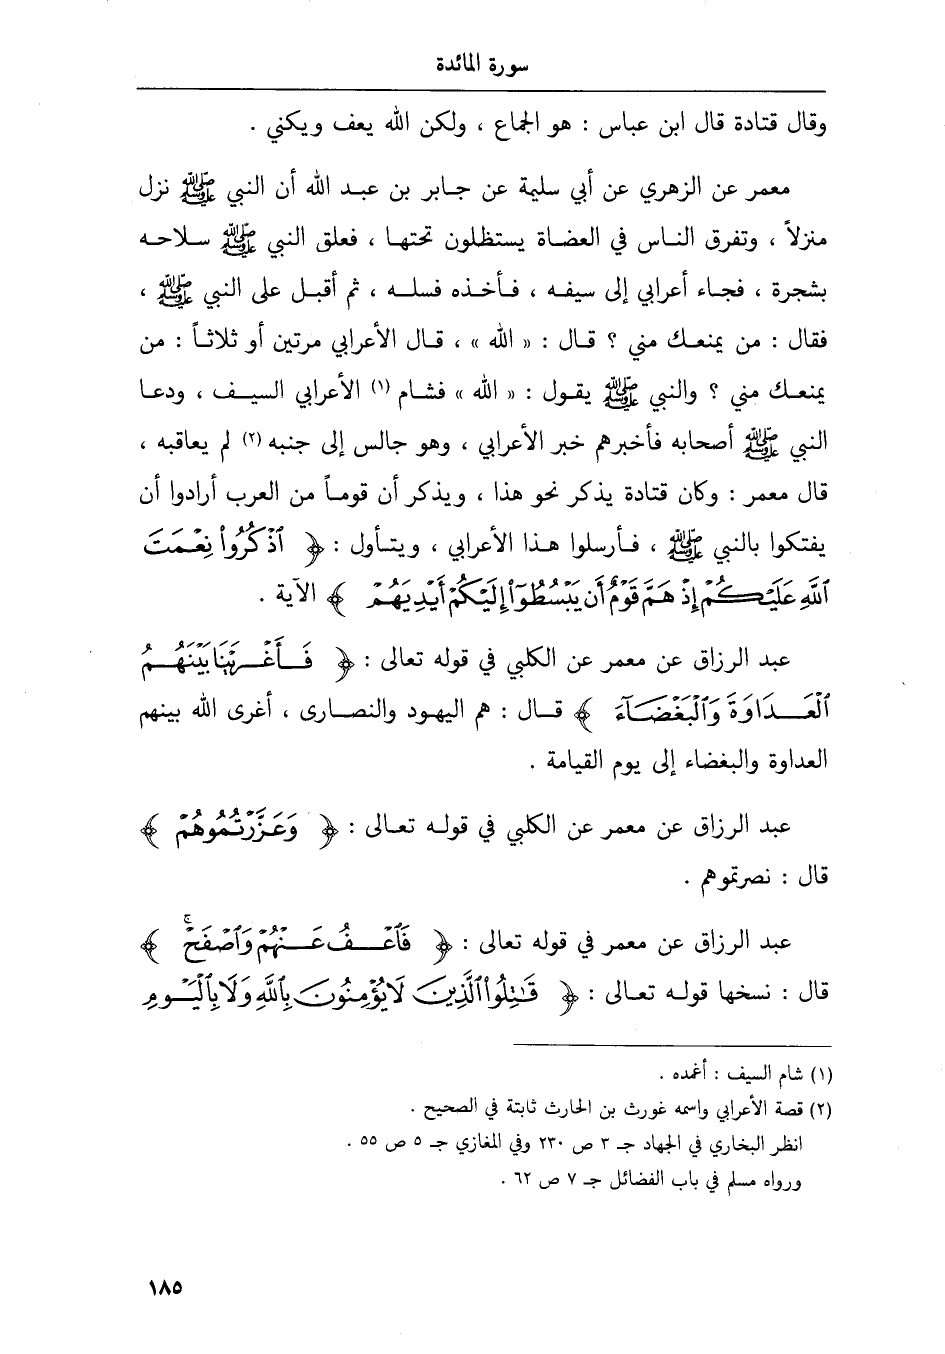 سورة المائدة
وقال قتادة قال ابن عباس : هو الجماع ، ولكن الله يعف ويكني .
معمر عن الزهري عن أبي سليمة عن جابر بن عبد الله أن النبي ﷺ نزل
منزلاً ، وتفرق الناس في العضاة يستظلون تحتها ، فعلق النبي ﷺ سلاحه
بشجرة ، فجاء أعرابي إلى سيفه ، فأخذه فسله ، ثم أقبل على النبي ﷺ ،
فقال : من يمنعك مني ؟ قال : « الله » ، قال الأعرابي مرتين أو ثلاثاً : من
يمنعك مني ؟ والنبي ﷺ يقول : « الله » فشام (١) الأعرابي السيف ، ودعا
النبي ﷺ أصحابه فأخبرهم خبر الأعرابي ، وهو جالس إلى جنبه (٢) لم يعاقبه ،
قال معمر : وكان قتادة يذكر نحو هذا ، ويذكر أن قوماً من العرب أرادوا أن
يفتكوا بالنبي ﷺ ، فأرسلوا هذا الأعرابي ، ويتأول : ﴿ ٱذْكُرُوا۟ نِعْمَتَ
ٱللَّهِ عَلَيْكُمْ إِذْ هَمَّ قَوْمٌ أَن يَبْسُطُوٓا۟ إِلَيْكُمْ أَيْدِيَهُمْ ﴾ الآية .
عبد الرزاق عن معمر عن الكلبي في قوله تعالى : ﴿ فَأَغْرَيْنَا بَيْنَهُمُ
ٱلْعَدَاوَةَ وَٱلْبَغْضَآءَ ﴾ قال : هم اليهود والنصارى ، أغرى الله بينهم
العداوة والبغضاء إلى يوم القيامة .
عبد الرزاق عن معمر عن الكلبي في قوله تعالى : ﴿ وَعَزَّرْتُمُوهُمْ ﴾
قال : نصرتموهم .
عبد الرزاق عن معمر في قوله تعالى : ﴿ فَٱعْفُ عَنْهُمْ وَٱصْفَحْ ۚ ﴾
قال : نسخها قوله تعالى : ﴿ قَٰتِلُوا۟ ٱلَّذِينَ لَا يُؤْمِنُونَ بِٱللَّهِ وَلَا بِٱلْيَوْمِ
(١) شام السيف : أغمده .
(٢) قصة الأعرابي واسمه غورث بن الحارث ثابتة في الصحيح .
انظر البخاري في الجهاد جـ ٣ ص ٢٣٠ وفي المغازي جـ ٥ ص ٥٥ .
ورواه مسلم في باب الفضائل جـ ٧ ص ٦٢ .
١٨٥